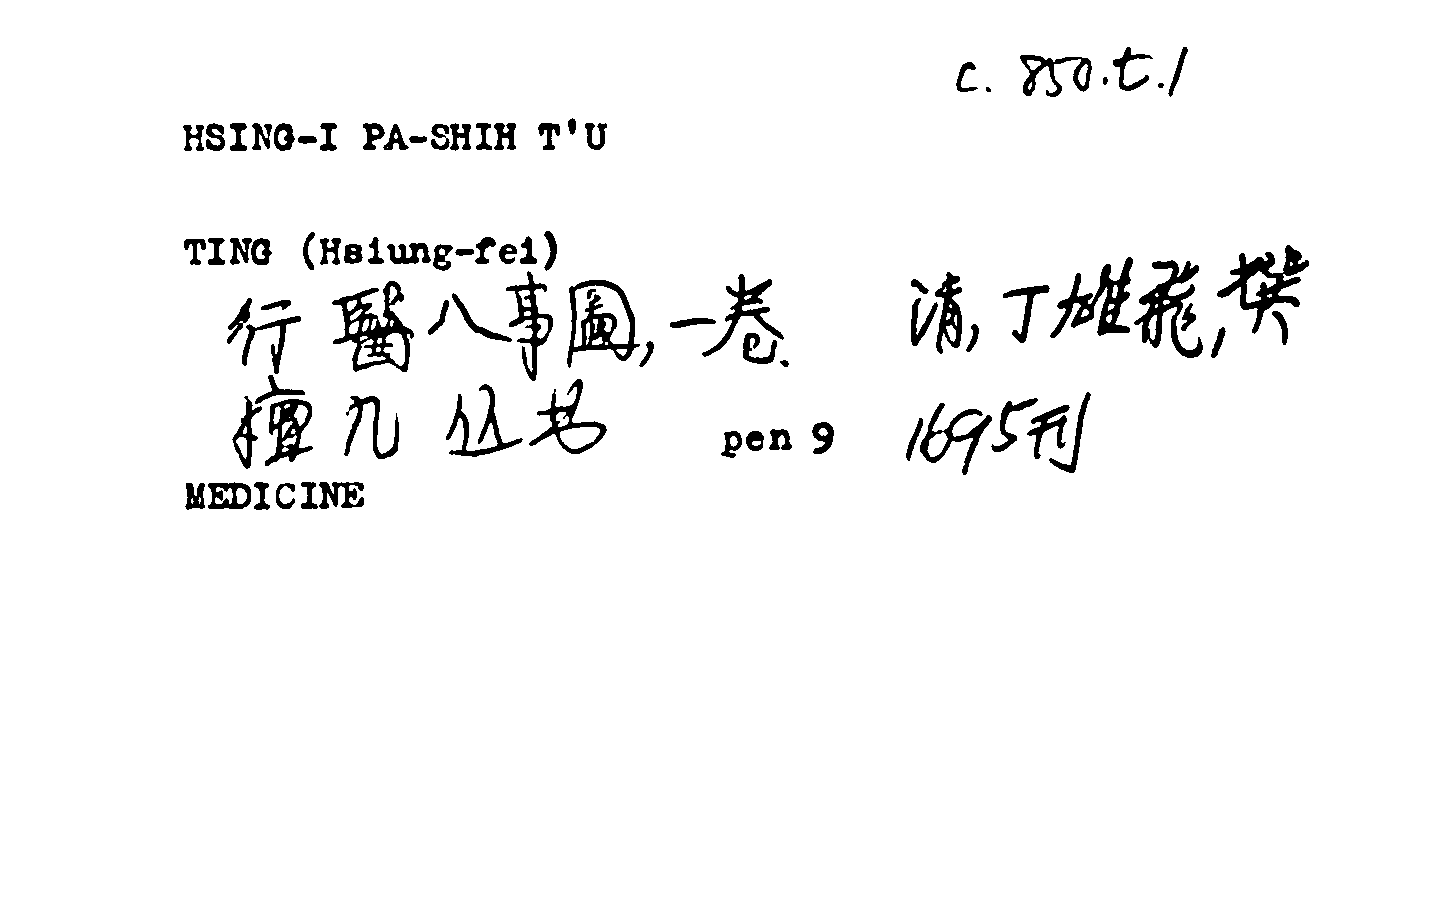 c. 850.t.1
HSING-I PA-SHIH T'U
TING (Hsiung-fei)
行醫八事圖,一卷. 清,丁雄飛,撰
檀几丛书 pen 9 1695刊
MEDICINE